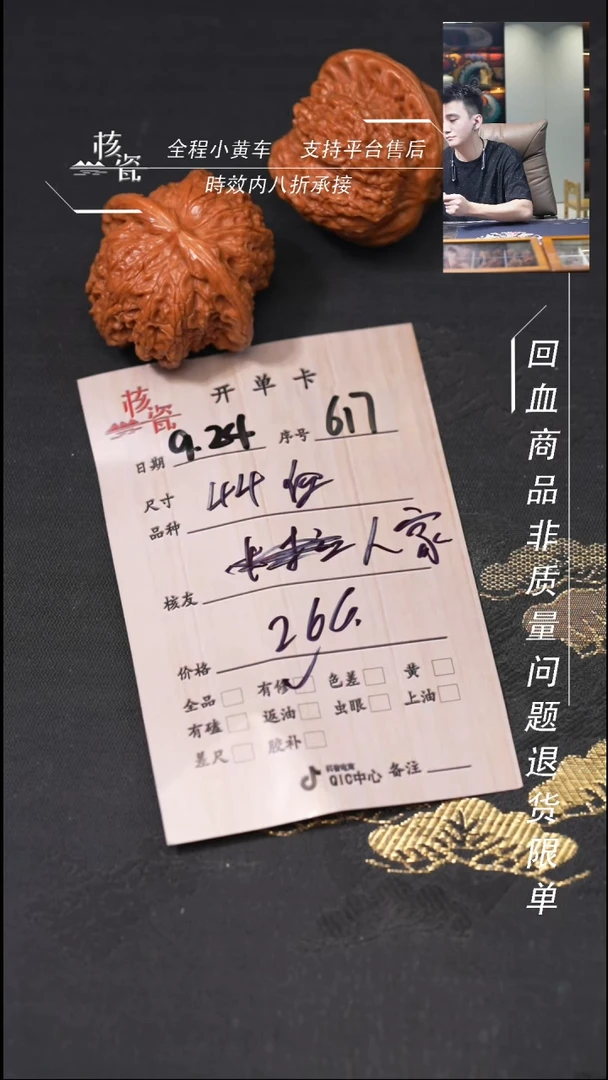 核瓷
全程小黄车 支持平台售后
時效内八折承接
回血商品非质量问题退货限单
核瓷 开单卡
日期 9.24 序号 617
尺寸 44
品种 人家
核友
26G.
价格
全品 有修 色差 黄
有磕 返油 虫眼 上油
差尺 胶补
抖音电商
QIC中心 备注